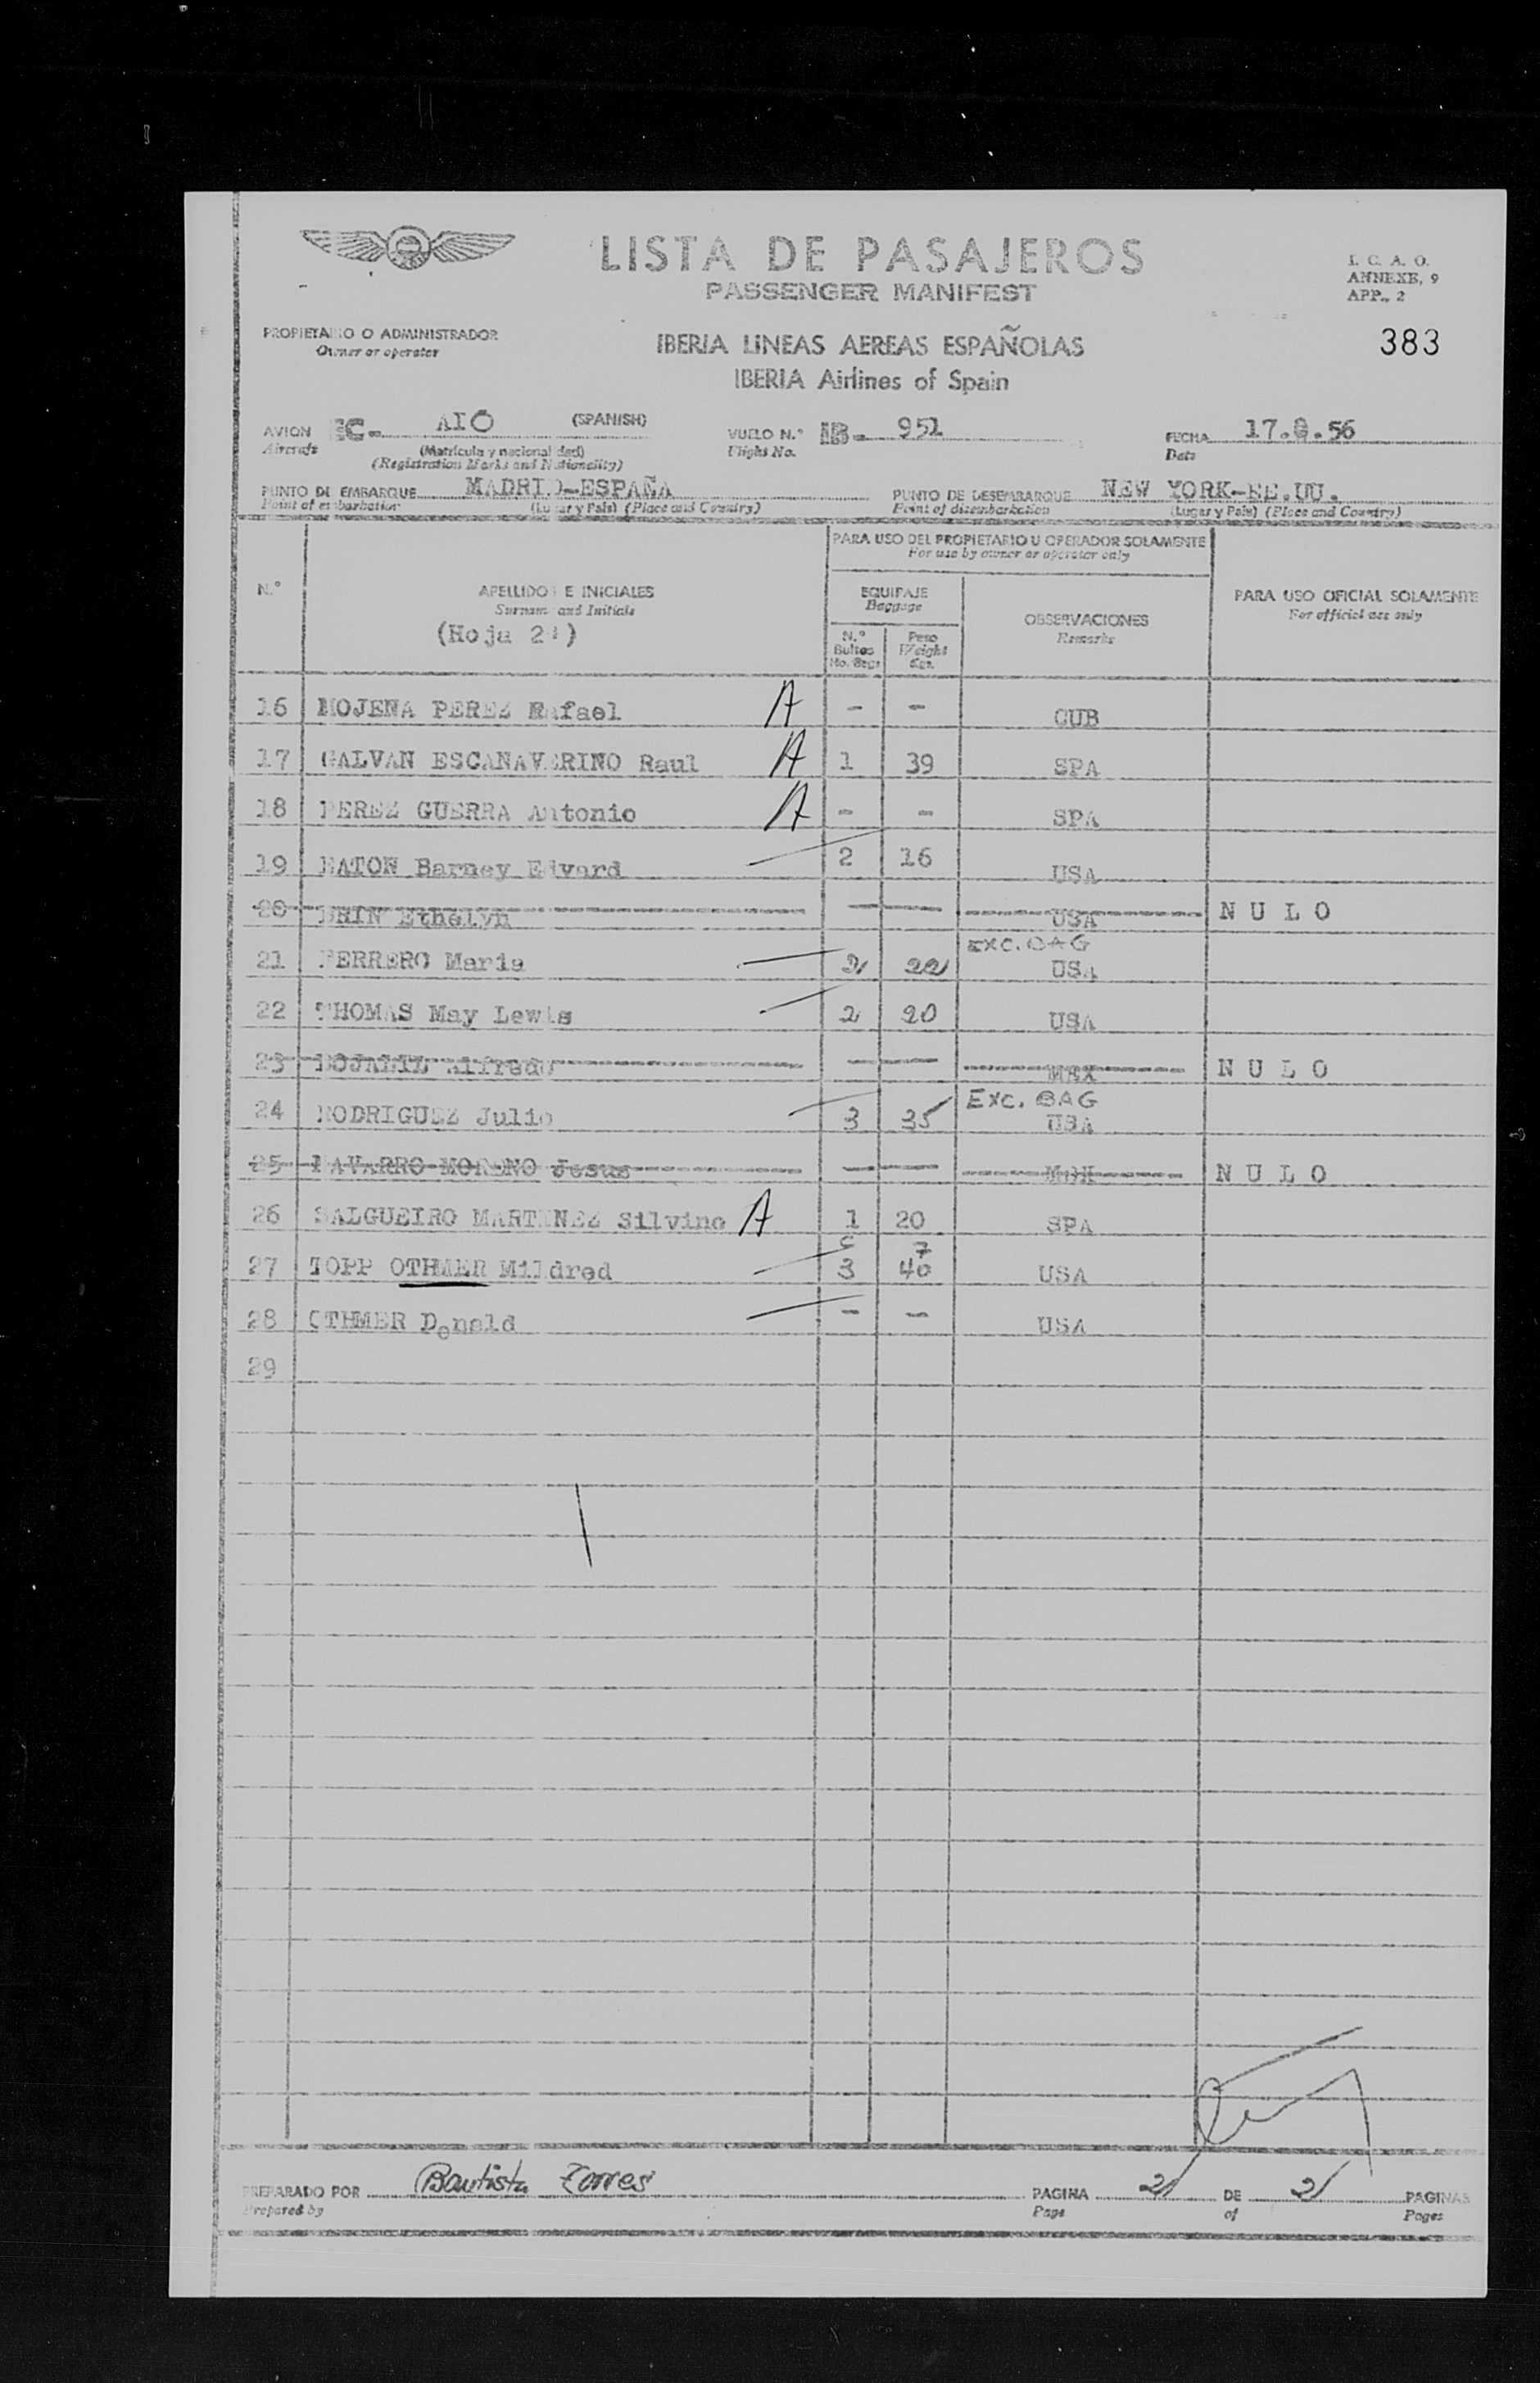 LISTA DE PASAJEROS
PASSENGER MANIFEST
I. C. A. O.
ANNEXE, 9
APP., 2
PROPIETARIO O ADMINISTRADOR
Owner or operator
IBERIA LINEAS AEREAS ESPAÑOLAS
IBERIA Airlines of Spain
383
AVION EC- AIO (SPANISH) VUELO N.º IB- 951 FECHA 17.8.56
Aircraft (Matrícula y nacionalidad) Flight No. Date
(Registration Marks and Nationality)
PUNTO DE EMBARQUE MADRID-ESPAÑA PUNTO DE DESEMBARQUE NEW YORK-EE.UU.
Point of embarkation (Lugar y País) (Place and Country) Point of disembarkation (Lugar y País) (Place and Country)
PARA USO DEL PROPIETARIO U OPERADOR SOLAMENTE
For use by owner or operator only
N.º APELLIDOS E INICIALES EQUIPAJE PARA USO OFICIAL SOLAMENTE
Surname and Initials Baggage OBSERVACIONES For official use only
(Hoja 2ª) Remarks
N.º Bultos Peso
No. Bags Weight Kgs.
16 MOJENA PEREZ Rafael A - - CUB
17 GALVAN ESCANAVERINO Raul A 1 39 SPA
18 PEREZ GUERRA Antonio A - - SPA
19 EATON Barney Edvard 2 16 USA
20 Ethelyn — — USA N U L O
EXC. BAG
21 FERRERO Maria 2 22 USA
22 THOMAS May Lewis 2 20 USA
23 Alfredo — — MEX N U L O
EXC. BAG
24 RODRIGUEZ Julio 3 35 USA
25 NAVARRO MORENO Jesus — — N U L O
26 SALGUEIRO MARTINEZ Silvino A 1 20 SPA
C 7
27 TOPP OTHMER Mildred 3 40 USA
28 OTHMER Donald - - USA
29
PREPARADO POR Bautista Torres PAGINA 2 DE 2 PAGINAS
Prepared by Page of Pages